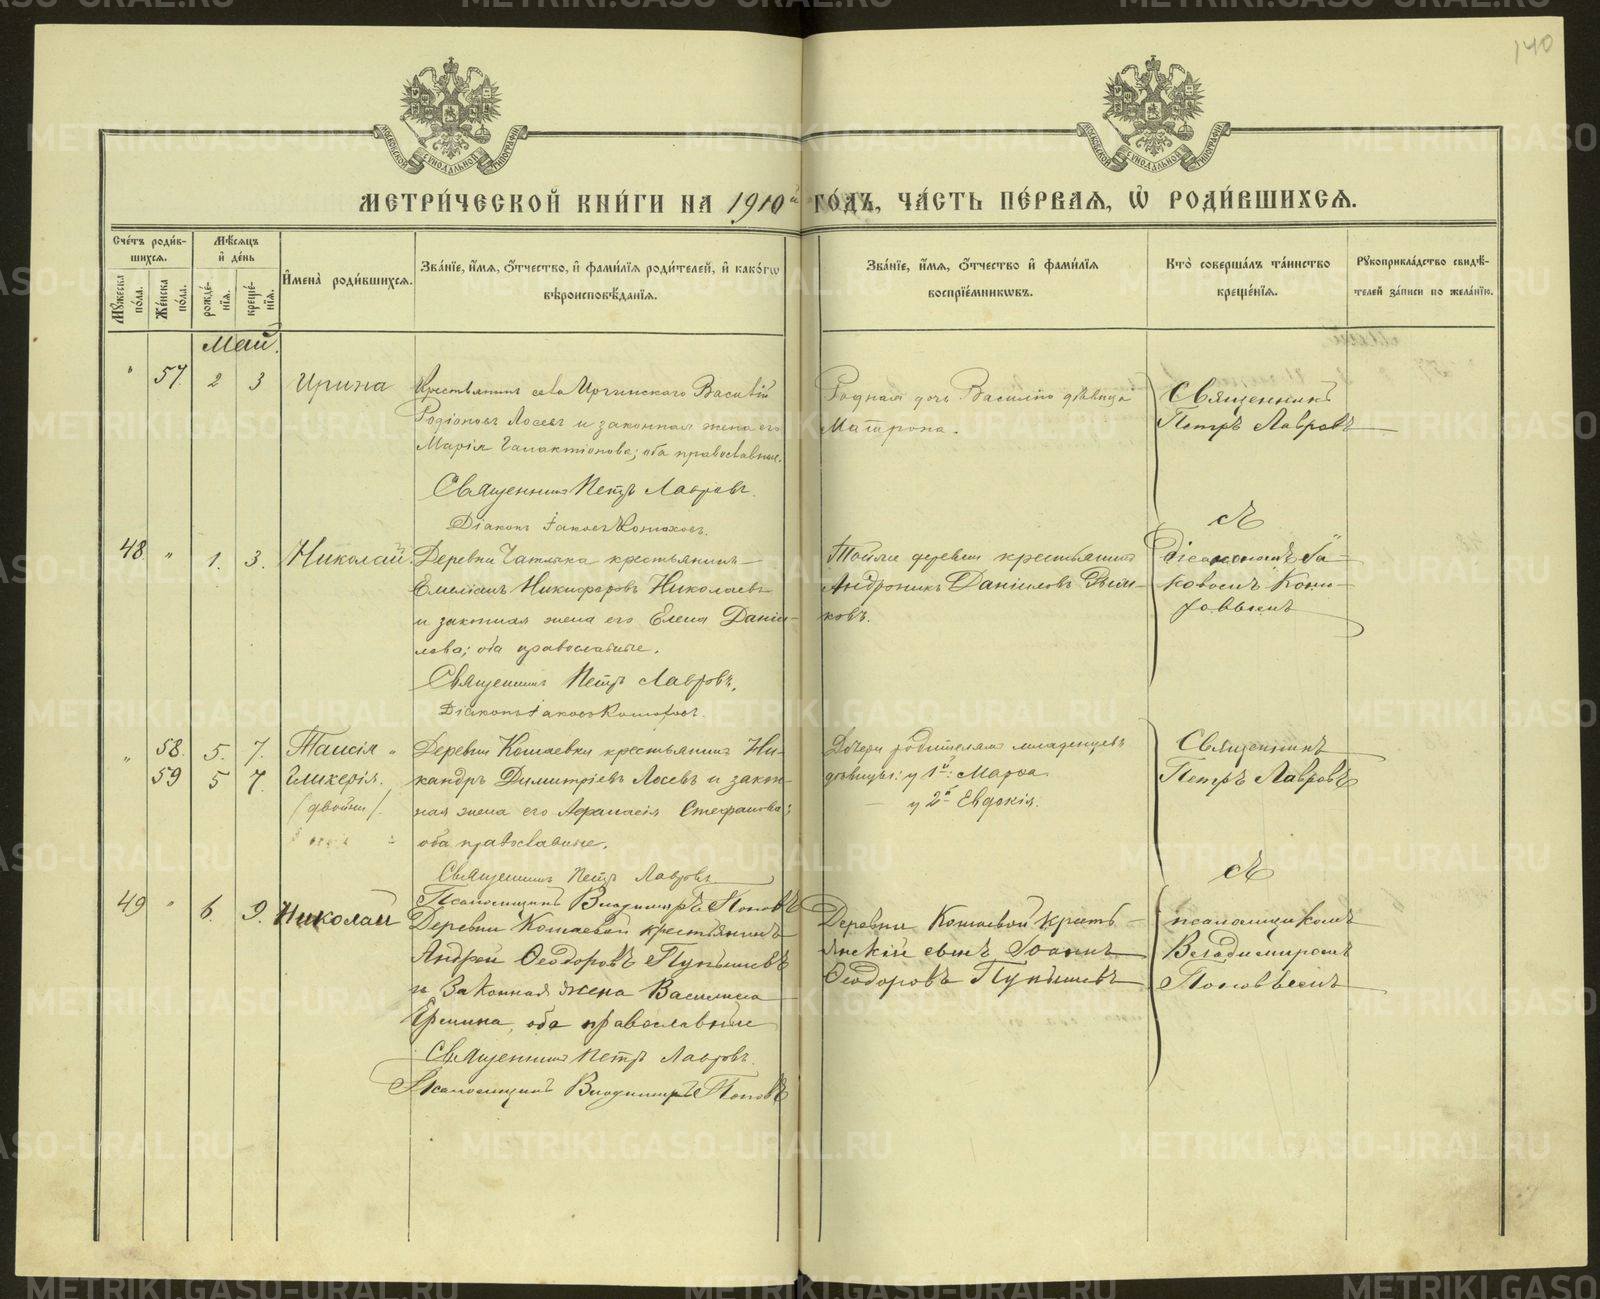 140
МОСКОВСКОЙ СѴНОДАЛЬНОЙ ТИПОГРАФІИ
МОСКОВСКОЙ СѴНОДАЛЬНОЙ ТИПОГРАФІИ
МЕТРИ́ЧЕСКОЙ КНИ́ГИ НА 1910й ГО́ДЪ, ЧА́СТЬ ПЕ́РВАѦ, Ѽ РОДИ́ВШИХСѦ.
Сче́тъ роди́в-
шихсѧ.
Мꙋжеска по́ла.
Же́нска по́ла.
Мѣ́сѧцъ
и҆ де́нь
рожде́-
нїѧ.
креще́-
нїѧ.
И҆мена̀ роди́вшихсѧ.
Зва́нїе, и҆́мѧ, ѻ҆́тчество, и҆ фами́лїѧ роди́телей, и҆ како́гѡ
вѣроисповѣ́данїѧ.
Зва́нїе, и҆́мѧ, ѻ҆́тчество и҆ фами́лїѧ
воспрїе́мникѡвъ.
Кто̀ соверша́лъ та́инство
креще́нїѧ.
Рꙋкоприкла́дство свидѣ́-
телей за́писи по жела́нїю.
Май.
" 57. 2 3 Ирина Крестьянинъ села Иргинскаго Василій
Родіоновъ Лосевъ и законная жена его
Марія Галактіонова; оба православные.
Священникъ Петръ Лавровъ.
Діаконъ Іаковъ Конюховъ.
Родная дочь Василія дѣвица
Матрона.
Священникъ
Петръ Лавровъ
48. " 1. 3. Николай Деревни Чатлыка крестьянинъ
Емеліанъ Никифоровъ Николаевъ
и законная жена его Елена Даніи-
лова; оба православные.
Священникъ Петръ Лавровъ.
Діаконъ Іаковъ Конюховъ.
Тойже деревни крестьянинъ
Андроникъ Даніиловъ
ковъ.
Діакономъ Іа-
ковомъ Коню-
ховымъ
" 58. 5. 7. Таисія " Деревни Кошаевки крестьянинъ Ни-
59 5 7. Гликерія. кандръ Димитріевъ Лосевъ и закон-
(двойни). ная жена его Афанасія Стефанова;
оба православные.
Священникъ Петръ Лавровъ
Псаломщикъ Владимиръ Поповъ
Дочери родителямъ младенцевъ
дѣвицы: у 1й: Марѳа
у 2й Евдокія.
Священникъ
Петръ Лавровъ
49 " 6. 9. Николай Деревни Кошаевой крестьянинъ
Андрей Ѳеодоровъ Пупышевъ
и законная жена Василиса
оба православные
Священникъ Петръ Лавровъ.
Псаломщикъ Владимиръ Поповъ
Деревни Кошаевой кресть-
янскій сынъ Іоаннъ
Ѳеодоровъ Пупышевъ
псаломщикомъ
Владимиромъ
Поповымъ
METRIKI.GASO-URAL.RU